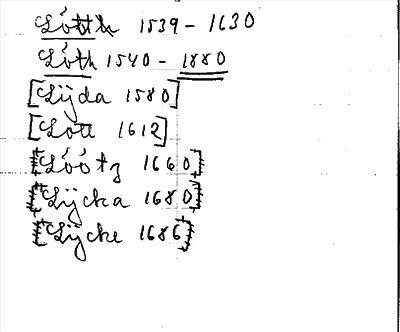 Lóttk 1539-1630
Lóth 1540-1880
[Lijda 1580]
[Lott 1612]
[Lóótz 1660]
[Lijcka 1680]
[Lijcke 1686]